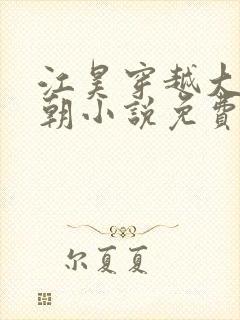 江昊穿越大
朝小說免費
尔夏夏